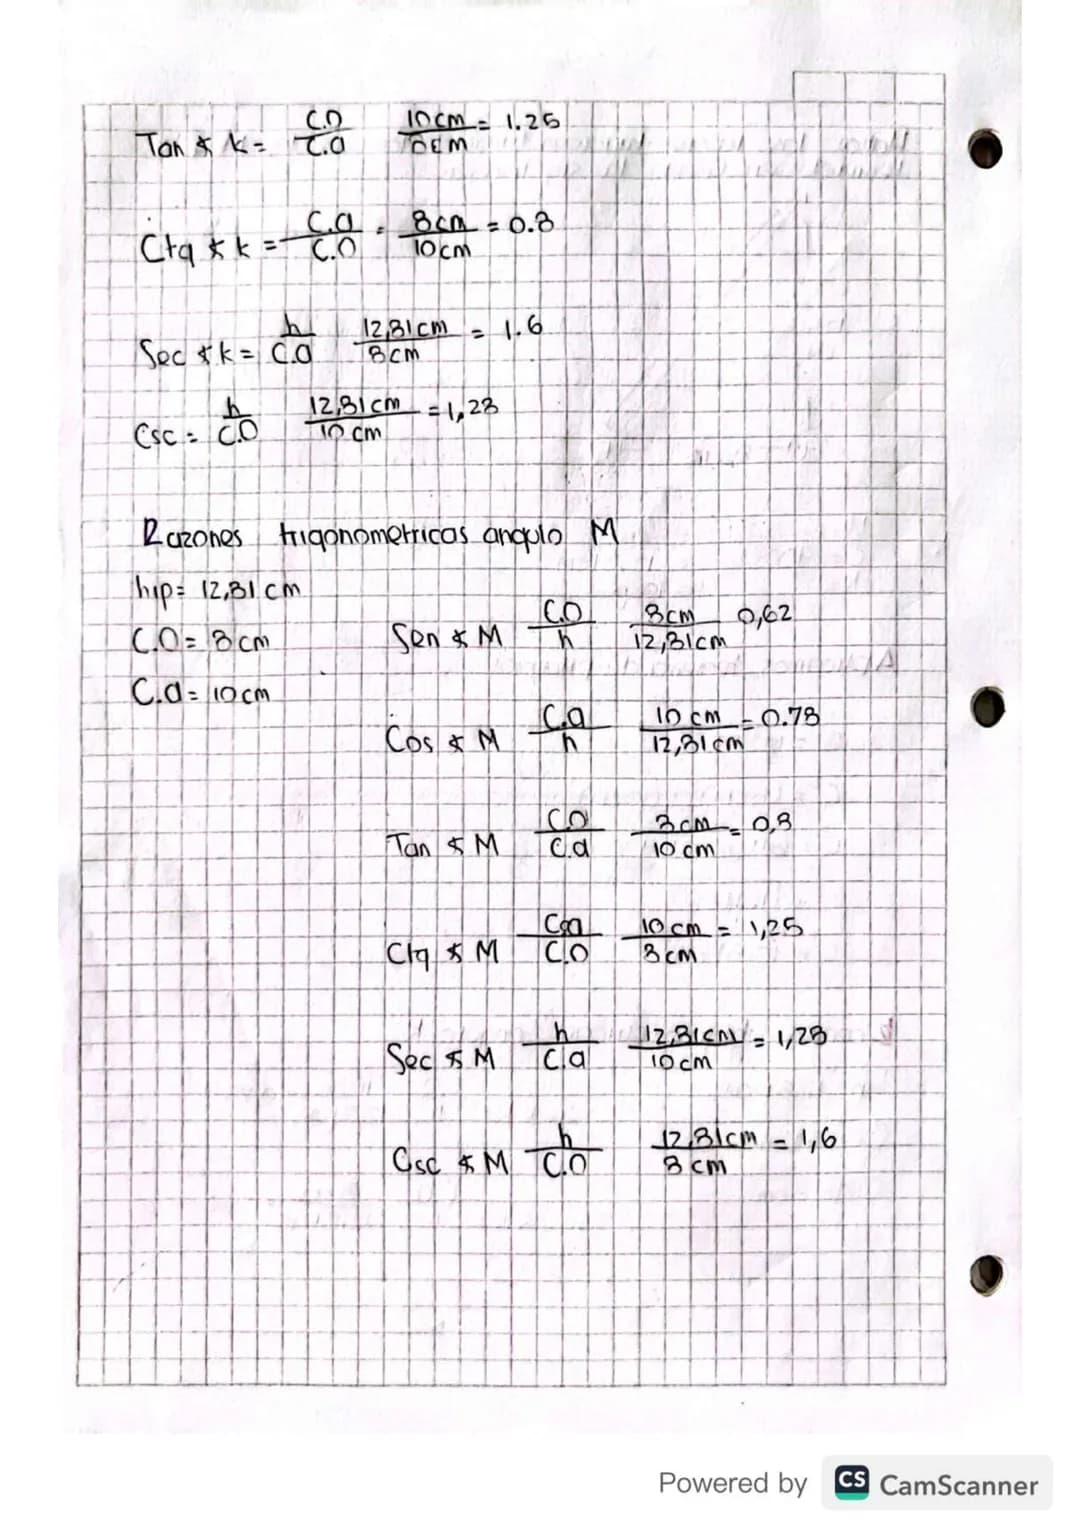 Tan ∡ K = C.O / C.a 10cm / 8cm = 1.25
Ctg ∡ k = C.a / C.O = 8cm / 10cm = 0.8
Sec ∡ k = h / C.a 12,81cm / 8cm = 1.6
Csc = h / C.O 12,81cm / 10 cm = 1,28
Razones trigonometricas angulo M
hip= 12,81 cm
C.O= 8 cm
C.a= 10 cm
Sen ∡ M C.O / h 8cm / 12,81cm 0,62
Cos ∡ M C.a / h 10 cm / 12,81cm = 0.78
Tan ∡ M C.O / C.a 8cm / 10 cm = 0,8
Ctg ∡ M C.a / C.O 10 cm / 8cm = 1,25
Sec ∡ M h / C.a 12,81cm / 10cm = 1,28
Csc ∡ M h / C.O 12,81cm / 8 cm = 1,6
Powered by CS CamScanner